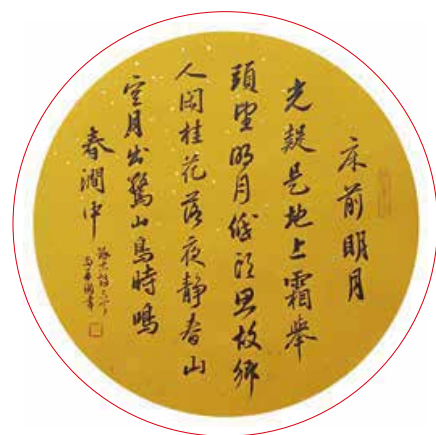 床前明月
光疑是地上霜舉
頭望明月低頭思故鄉
人閑桂花落夜靜春山
空月出驚山鳥時鳴
春澗中